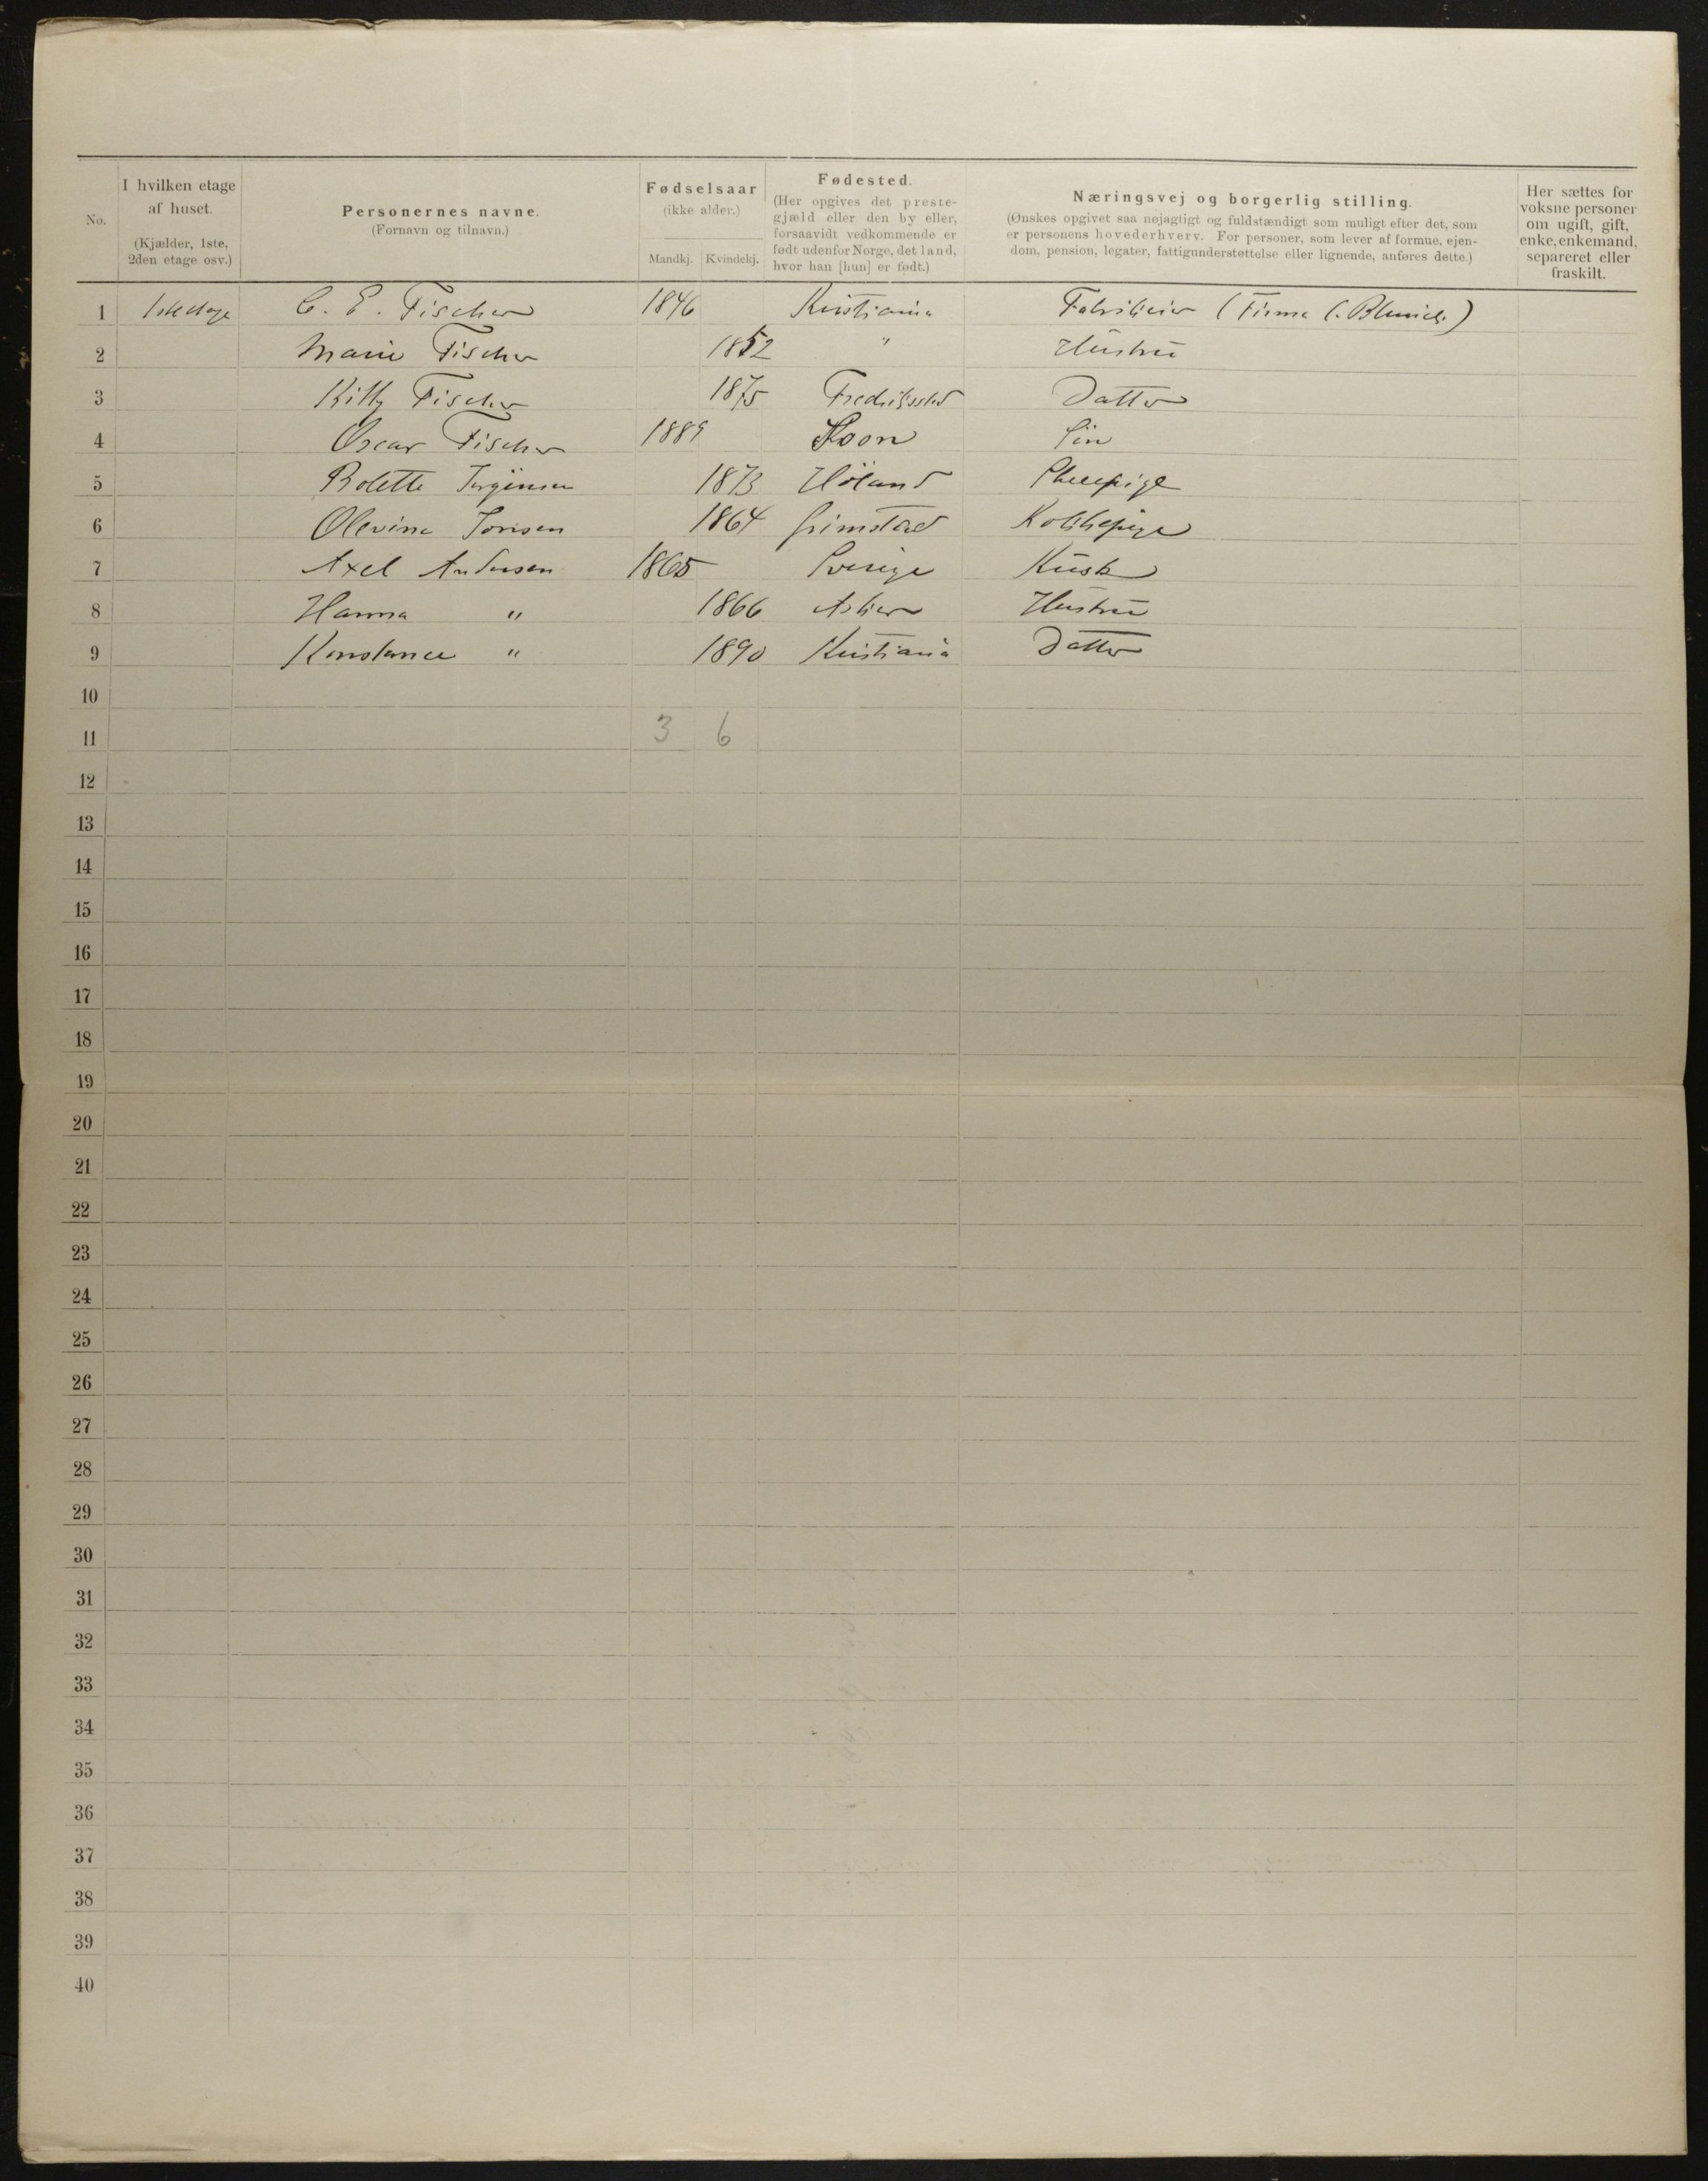 No.
I hvilken etage
af huset.
(Kjælder, 1ste,
2den etage osv.)
Personernes navne.
(Fornavn og tilnavn.)
Fødselsaar
(ikke alder.)
Mandkj. Kvindekj.
Fødested.
(Her opgives det preste-
gjæld eller den by eller,
forsaavidt vedkommende er
født udenfor Norge, det land,
hvor han [hun] er født.)
Næringsvej og borgerlig stilling.
(Ønskes opgivet saa nøjagtigt og fuldstændigt som muligt efter det, som
er personens hovederhverv. For personer, som lever af formue, ejen-
dom, pension, legater, fattigunderstøttelse eller lignende, anføres dette.)
Her sættes for
voksne personer
om ugift, gift,
enke, enkemand,
separeret eller
fraskilt.
1 1ste etage C. E. Fischer 1846 Kristiania (Firma
2 Marie Fischer 1852 " Hustru
3 Kitty Fischer 1875 Fredriksstad Datter
4 Oscar Fischer 1889 Soon Sön
5 Bolette Jörginsen 1873 Höland
6 Olevine 1864 Grimstad Kokkepige
7 Axel Andersen 1865 Sverige Kusk
8 Hanna " 1866 Asker Hustru
9 Konstance " 1890 Kristiania Datter
10
11 3 6
12
13
14
15
16
17
18
19
20
21
22
23
24
25
26
27
28
29
30
31
32
33
34
35
36
37
38
39
40